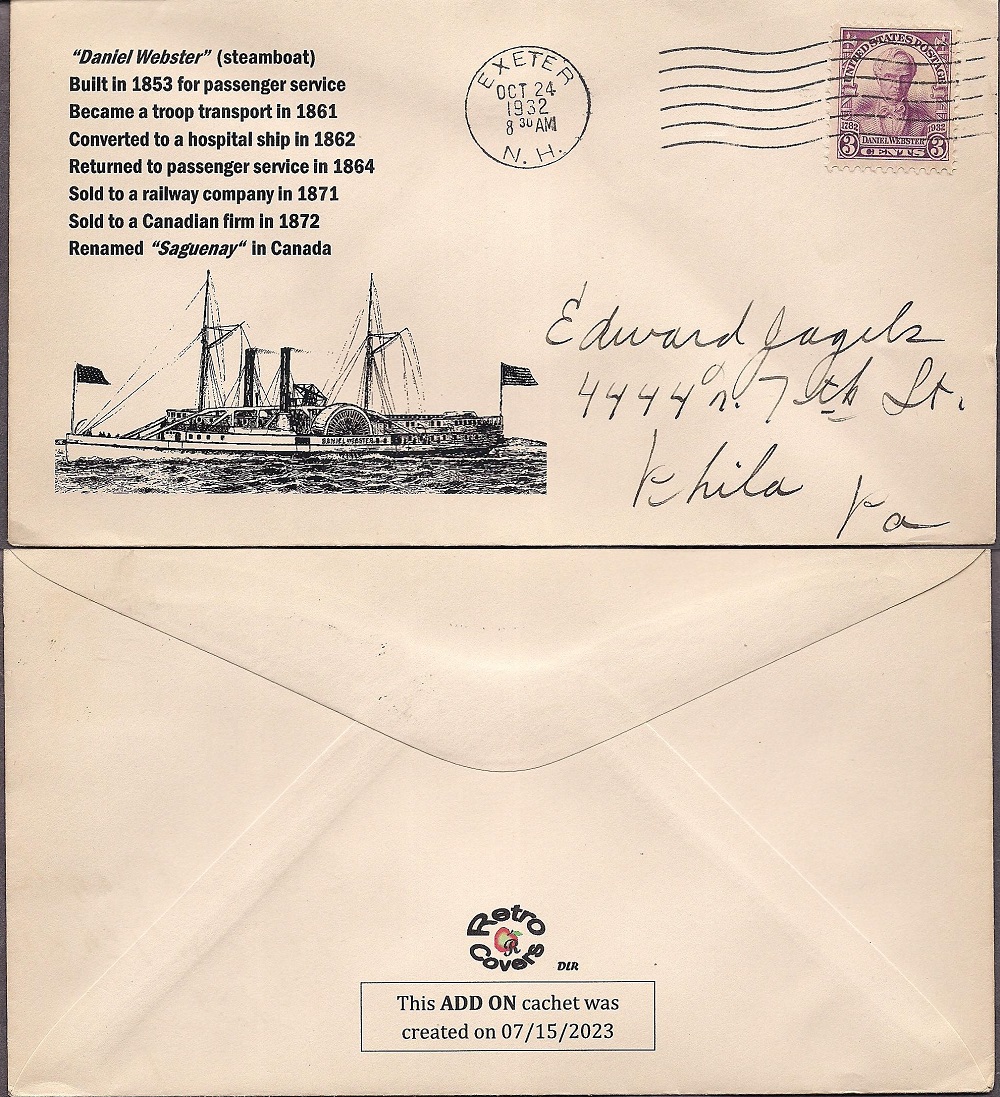 “Daniel Webster” (steamboat)
Built in 1853 for passenger service
Became a troop transport in 1861
Converted to a hospital ship in 1862
Returned to passenger service in 1864
Sold to a railway company in 1871
Sold to a Canadian firm in 1872
Renamed “Saguenay“ in Canada
DANIEL WEBSTER
EXETER
OCT 24
1932
8 30 AM
N. H.
UNITED STATES POSTAGE
1782 1932
DANIEL WEBSTER
3 CENTS 3
Edward Jagels
4444 n. 7th St.
Phila
Pa
Retro
R
Covers
DLR
This ADD ON cachet was
created on 07/15/2023